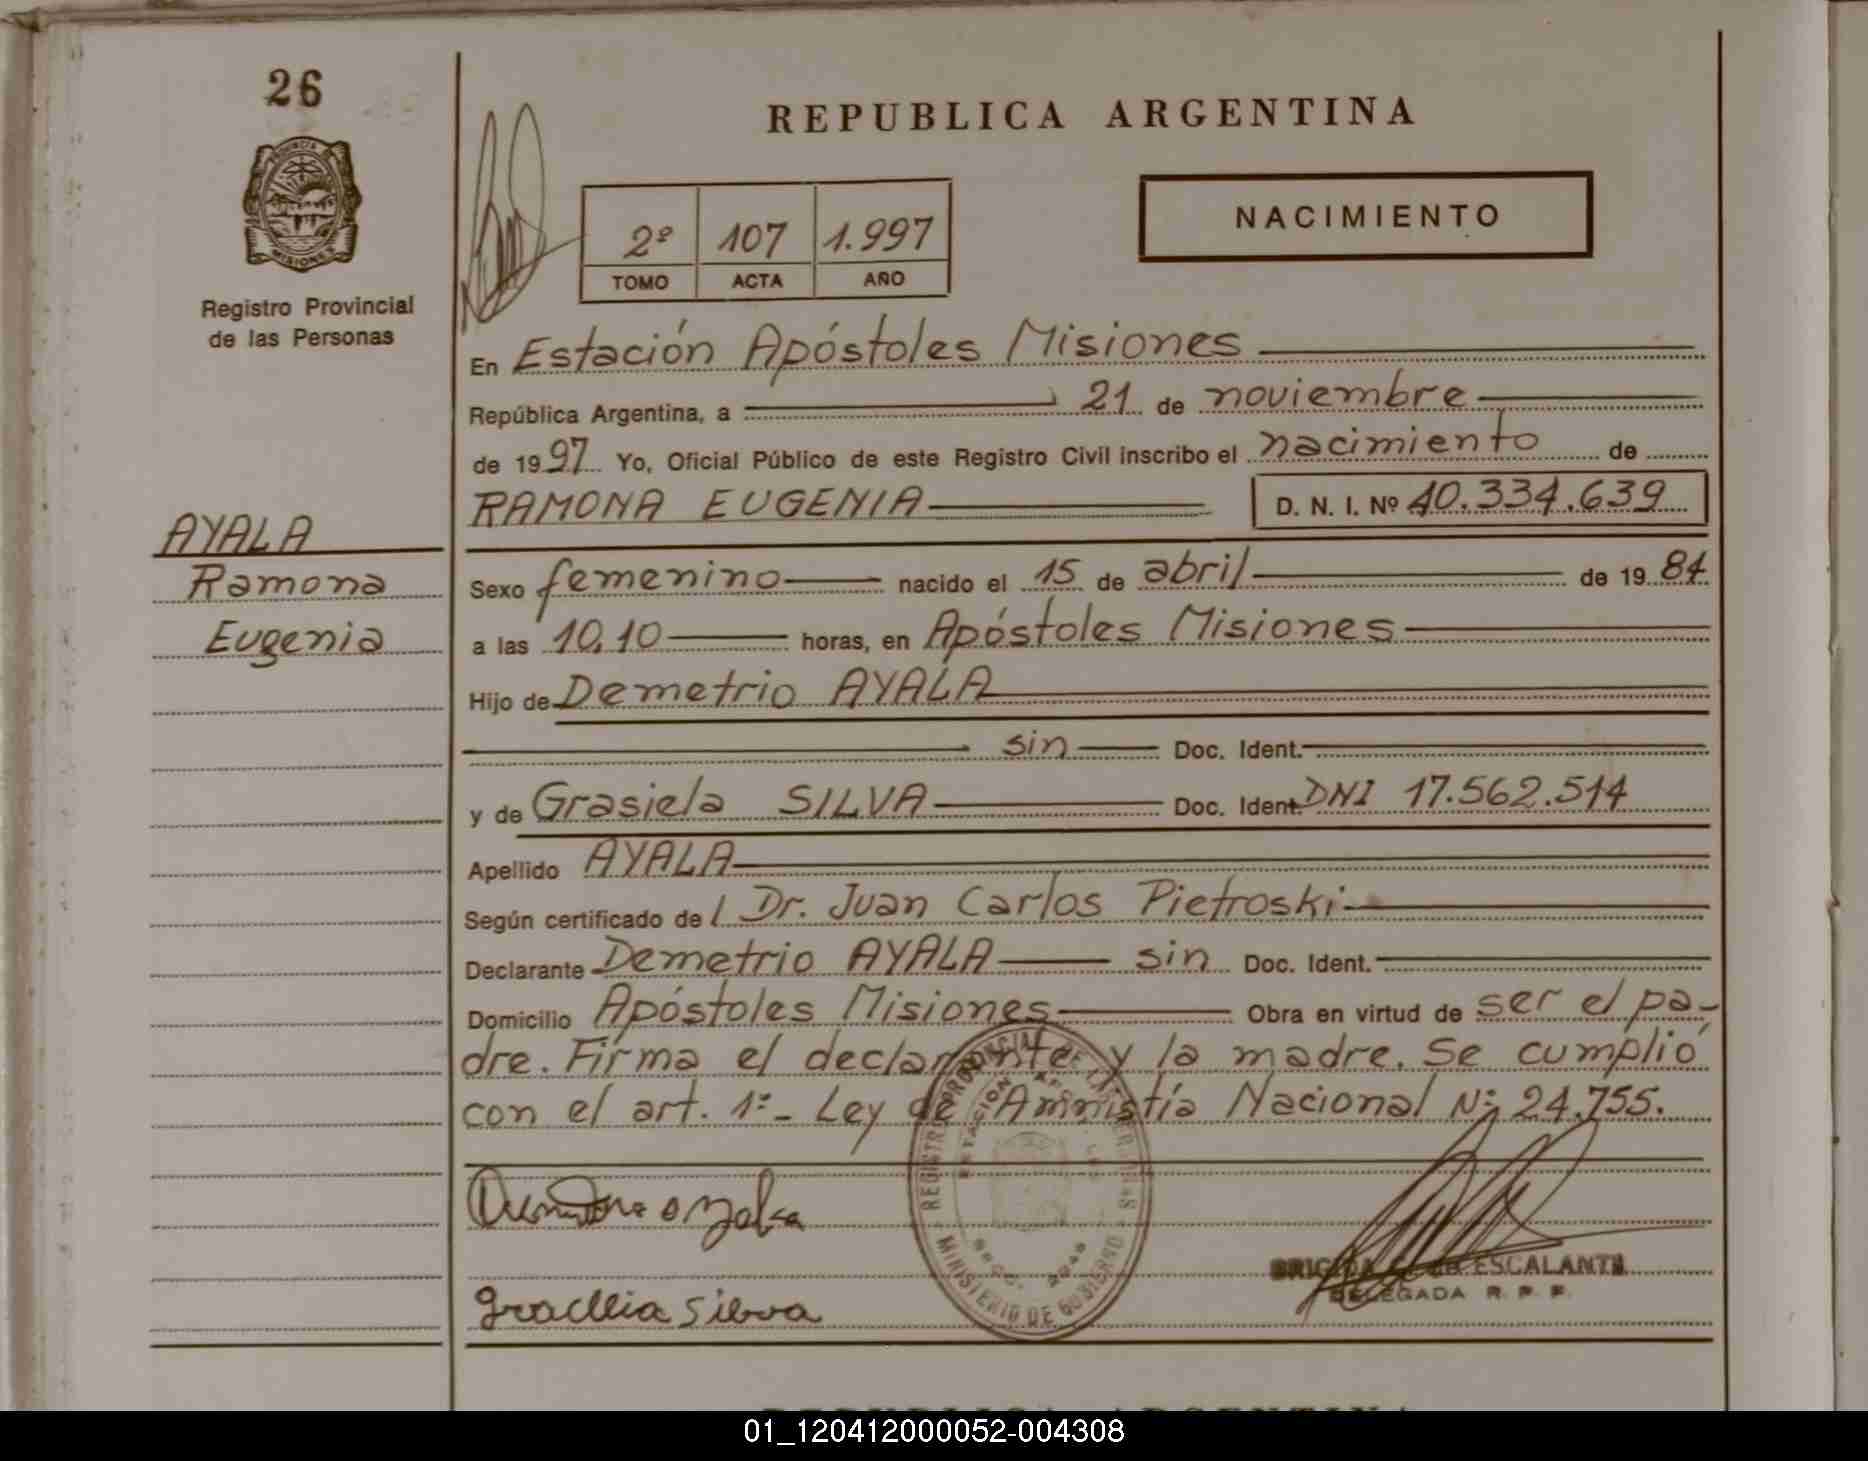 26
PROVINCIA DE
MISIONES
Registro Provincial
de las Personas
AYALA
Ramona
Eugenia
REPUBLICA ARGENTINA
2º 107 1.997
TOMO ACTA AÑO
NACIMIENTO
En Estación Apóstoles Misiones
República Argentina, a 21 de noviembre
de 1997 Yo, Oficial Público de este Registro Civil inscribo el nacimiento de
RAMONA EUGENIA D. N. I. Nº 40.334.639
Sexo femenino nacido el 15 de abril de 1984
a las 10,10 horas, en Apóstoles Misiones
Hijo de Demetrio AYALA
sin Doc. Ident.
y de Grasiela SILVA Doc. Ident. DNI 17.562.514
Apellido AYALA
Según certificado del Dr. Juan Carlos Pietroski
Declarante Demetrio AYALA sin Doc. Ident.
Domicilio Apóstoles Misiones Obra en virtud de ser el pa-
dre. Firma el declarante y la madre. Se cumplió
con el art. 1º- Ley de Amnistía Nacional Nº 24.755.
REGISTRO PROVINCIAL DE LAS PERSONAS
ESTACION
MINISTERIO DE GOBIERNO
ESCALANTE
DELEGADA R. P. P.
Silva
REPUBLICA ARGENTINA
01_120412000052-004308